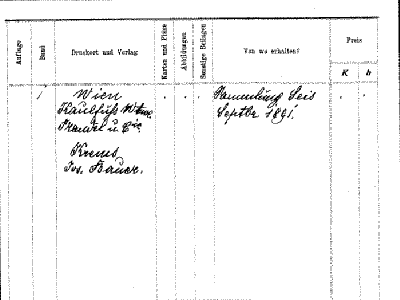 Auflage Band Druckort und Verlag Karten und Pläne Abbildungen Sonstige Beilagen Von wo erhalten? Preis
K h
1 Wien Sammlung Seis
Kaulfuß Wwe. Septbr 1891.
Prandel u. Cie
Krems
Jos. Bauer.